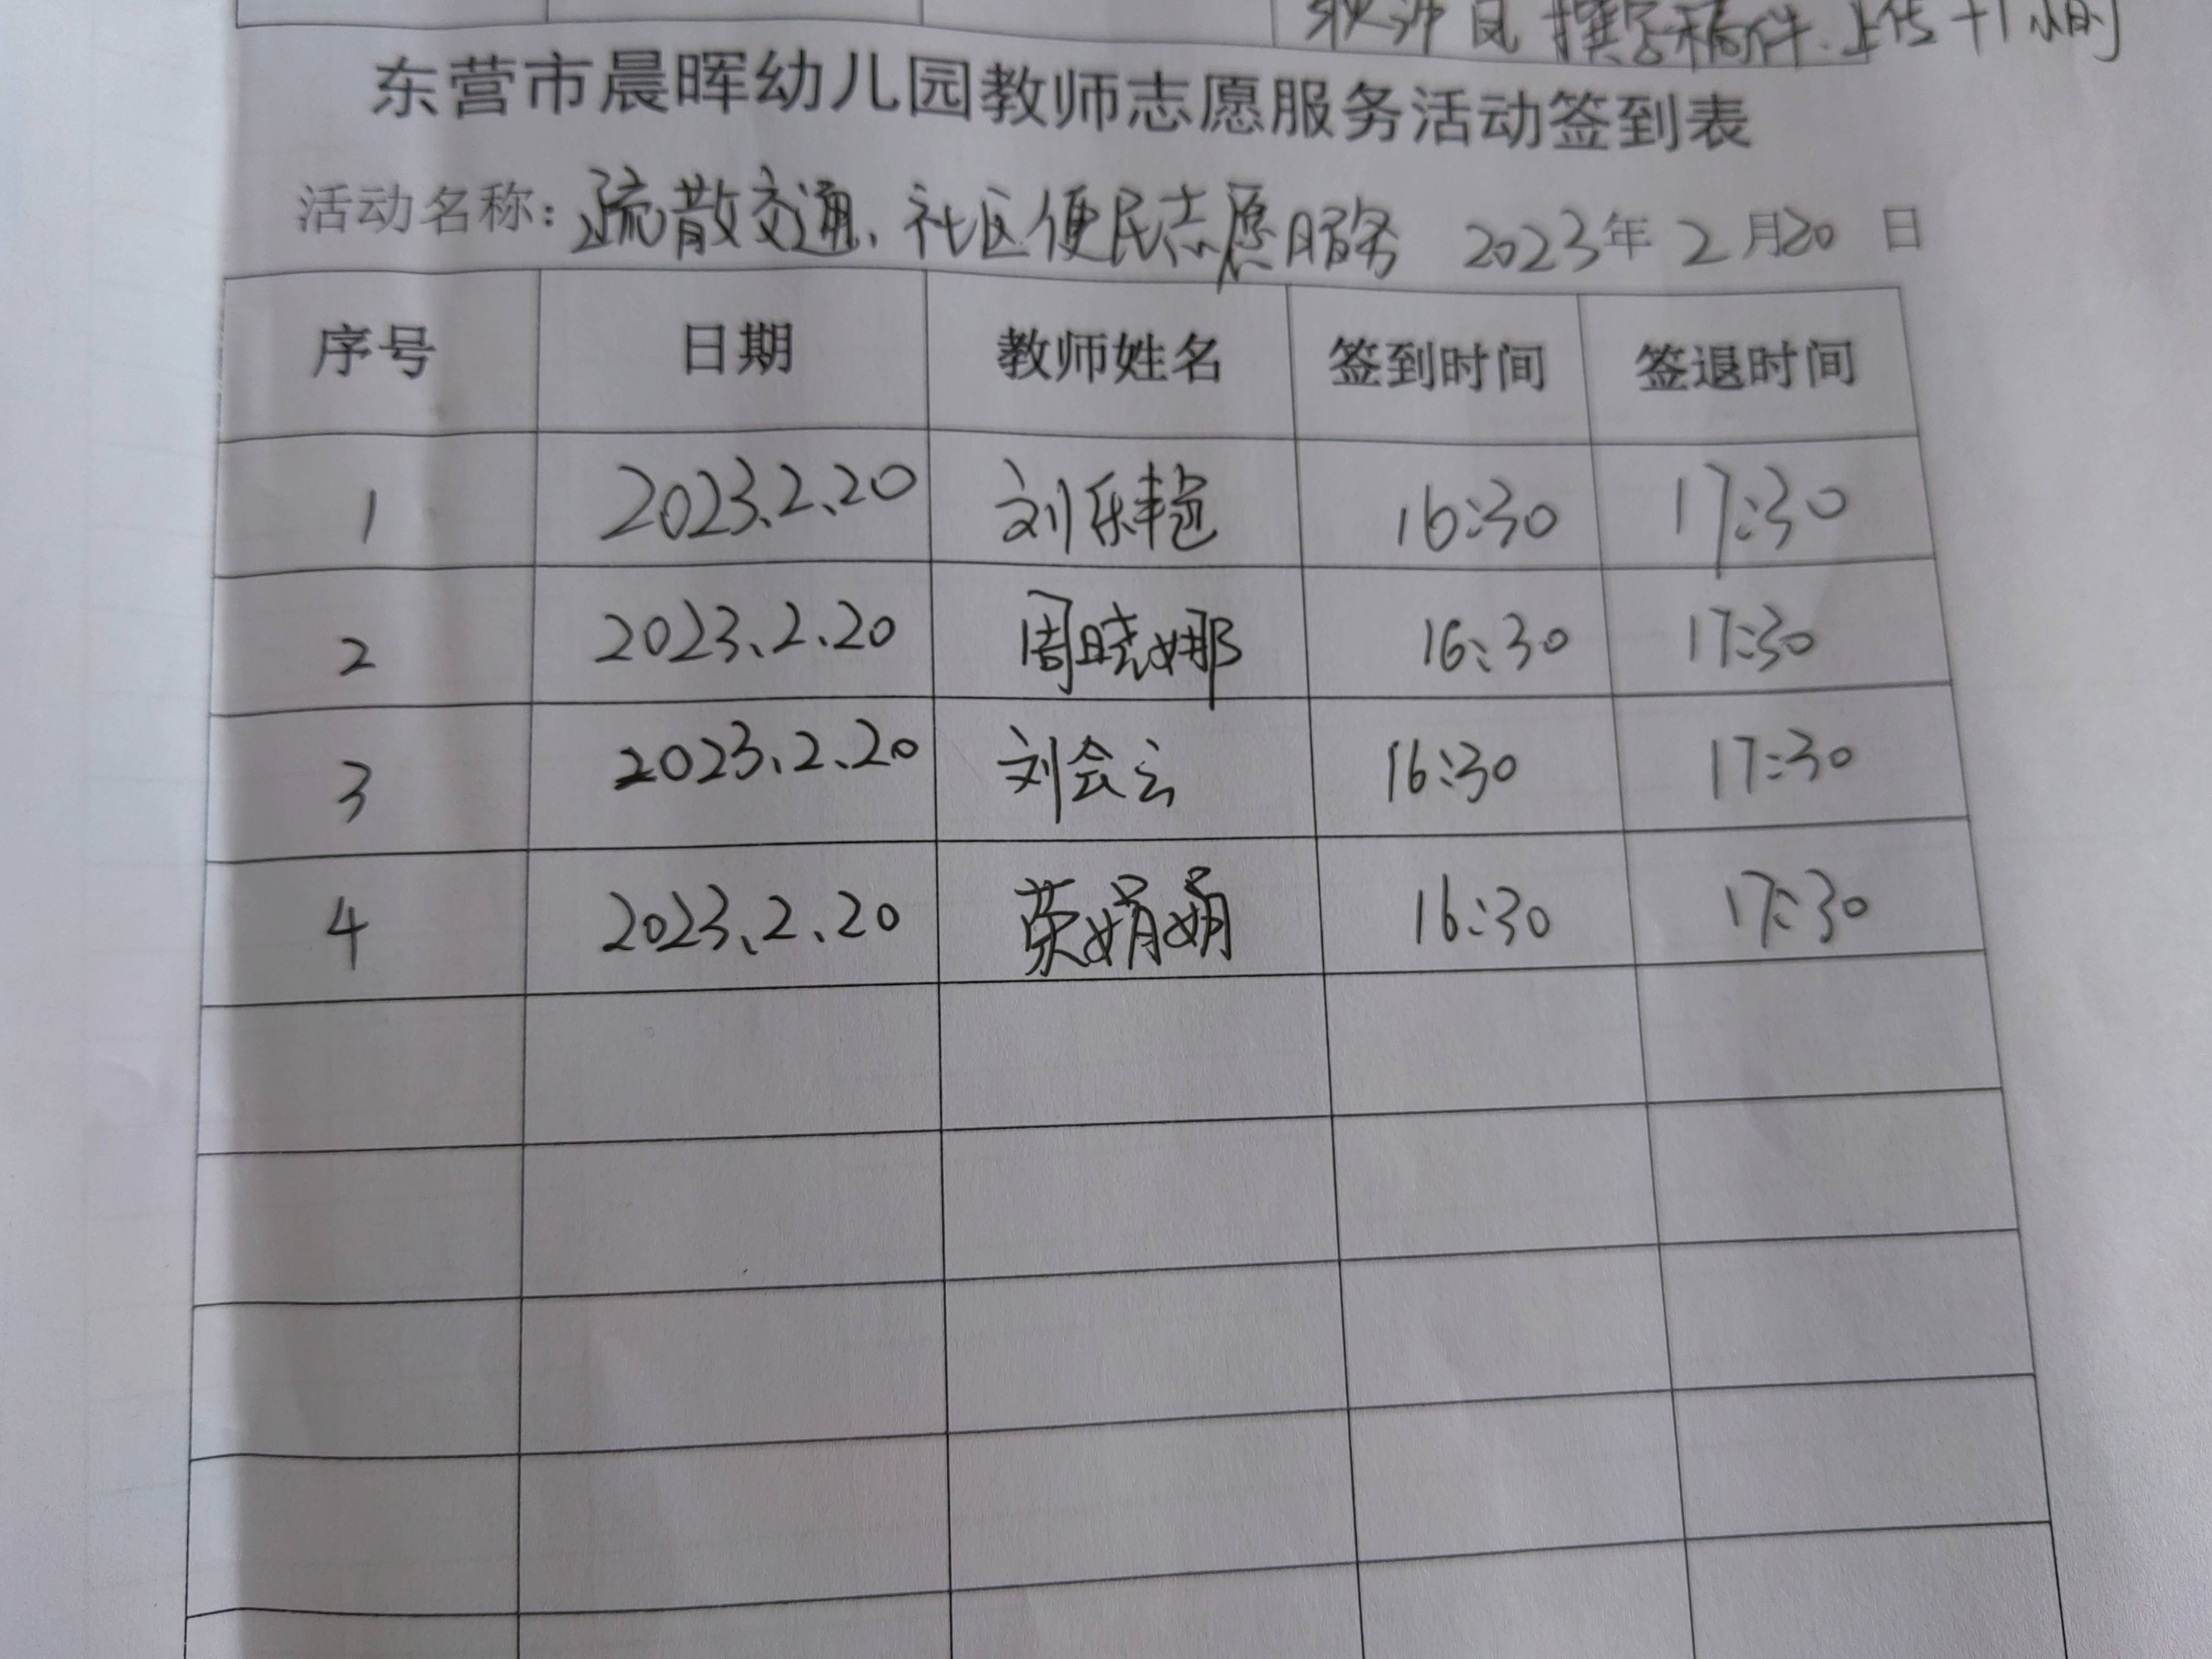 撰写稿件.上传+1小时
东营市晨晖幼儿园教师志愿服务活动签到表
活动名称：疏散交通、社区便民志愿服务 2023年2月20日
序号 日期 教师姓名 签到时间 签退时间
1 2023.2.20 刘乐艳 16:30 17:30
2 2023.2.20 周晓娜 16:30 17:30
3 2023.2.20 刘会云 16:30 17:30
4 2023.2.20 荣娟娟 16:30 17:30